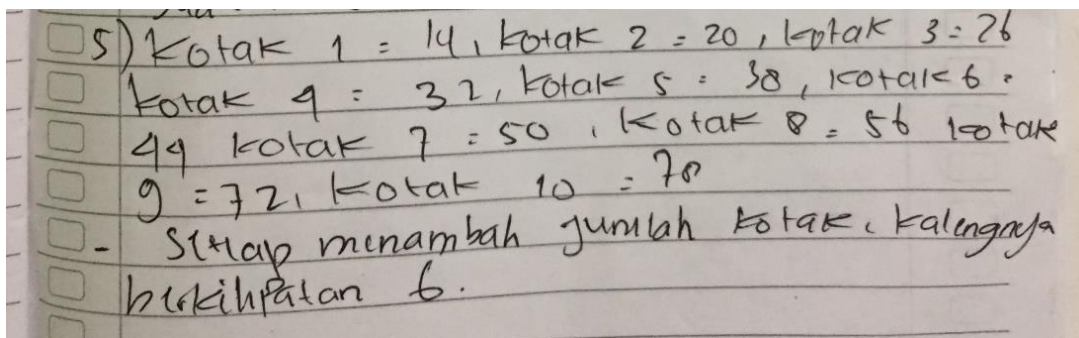 5) Kotak 1 = 14, kotak 2 = 20, kotak 3 = 26
kotak 4 = 32, kotak 5 = 38, kotak 6 =
44 kotak 7 = 50, kotak 8 = 56 kotak
9 = 72, kotak 10 = 78
- Setiap menambah jumlah kotak, kalengnya
berkilipatan 6.